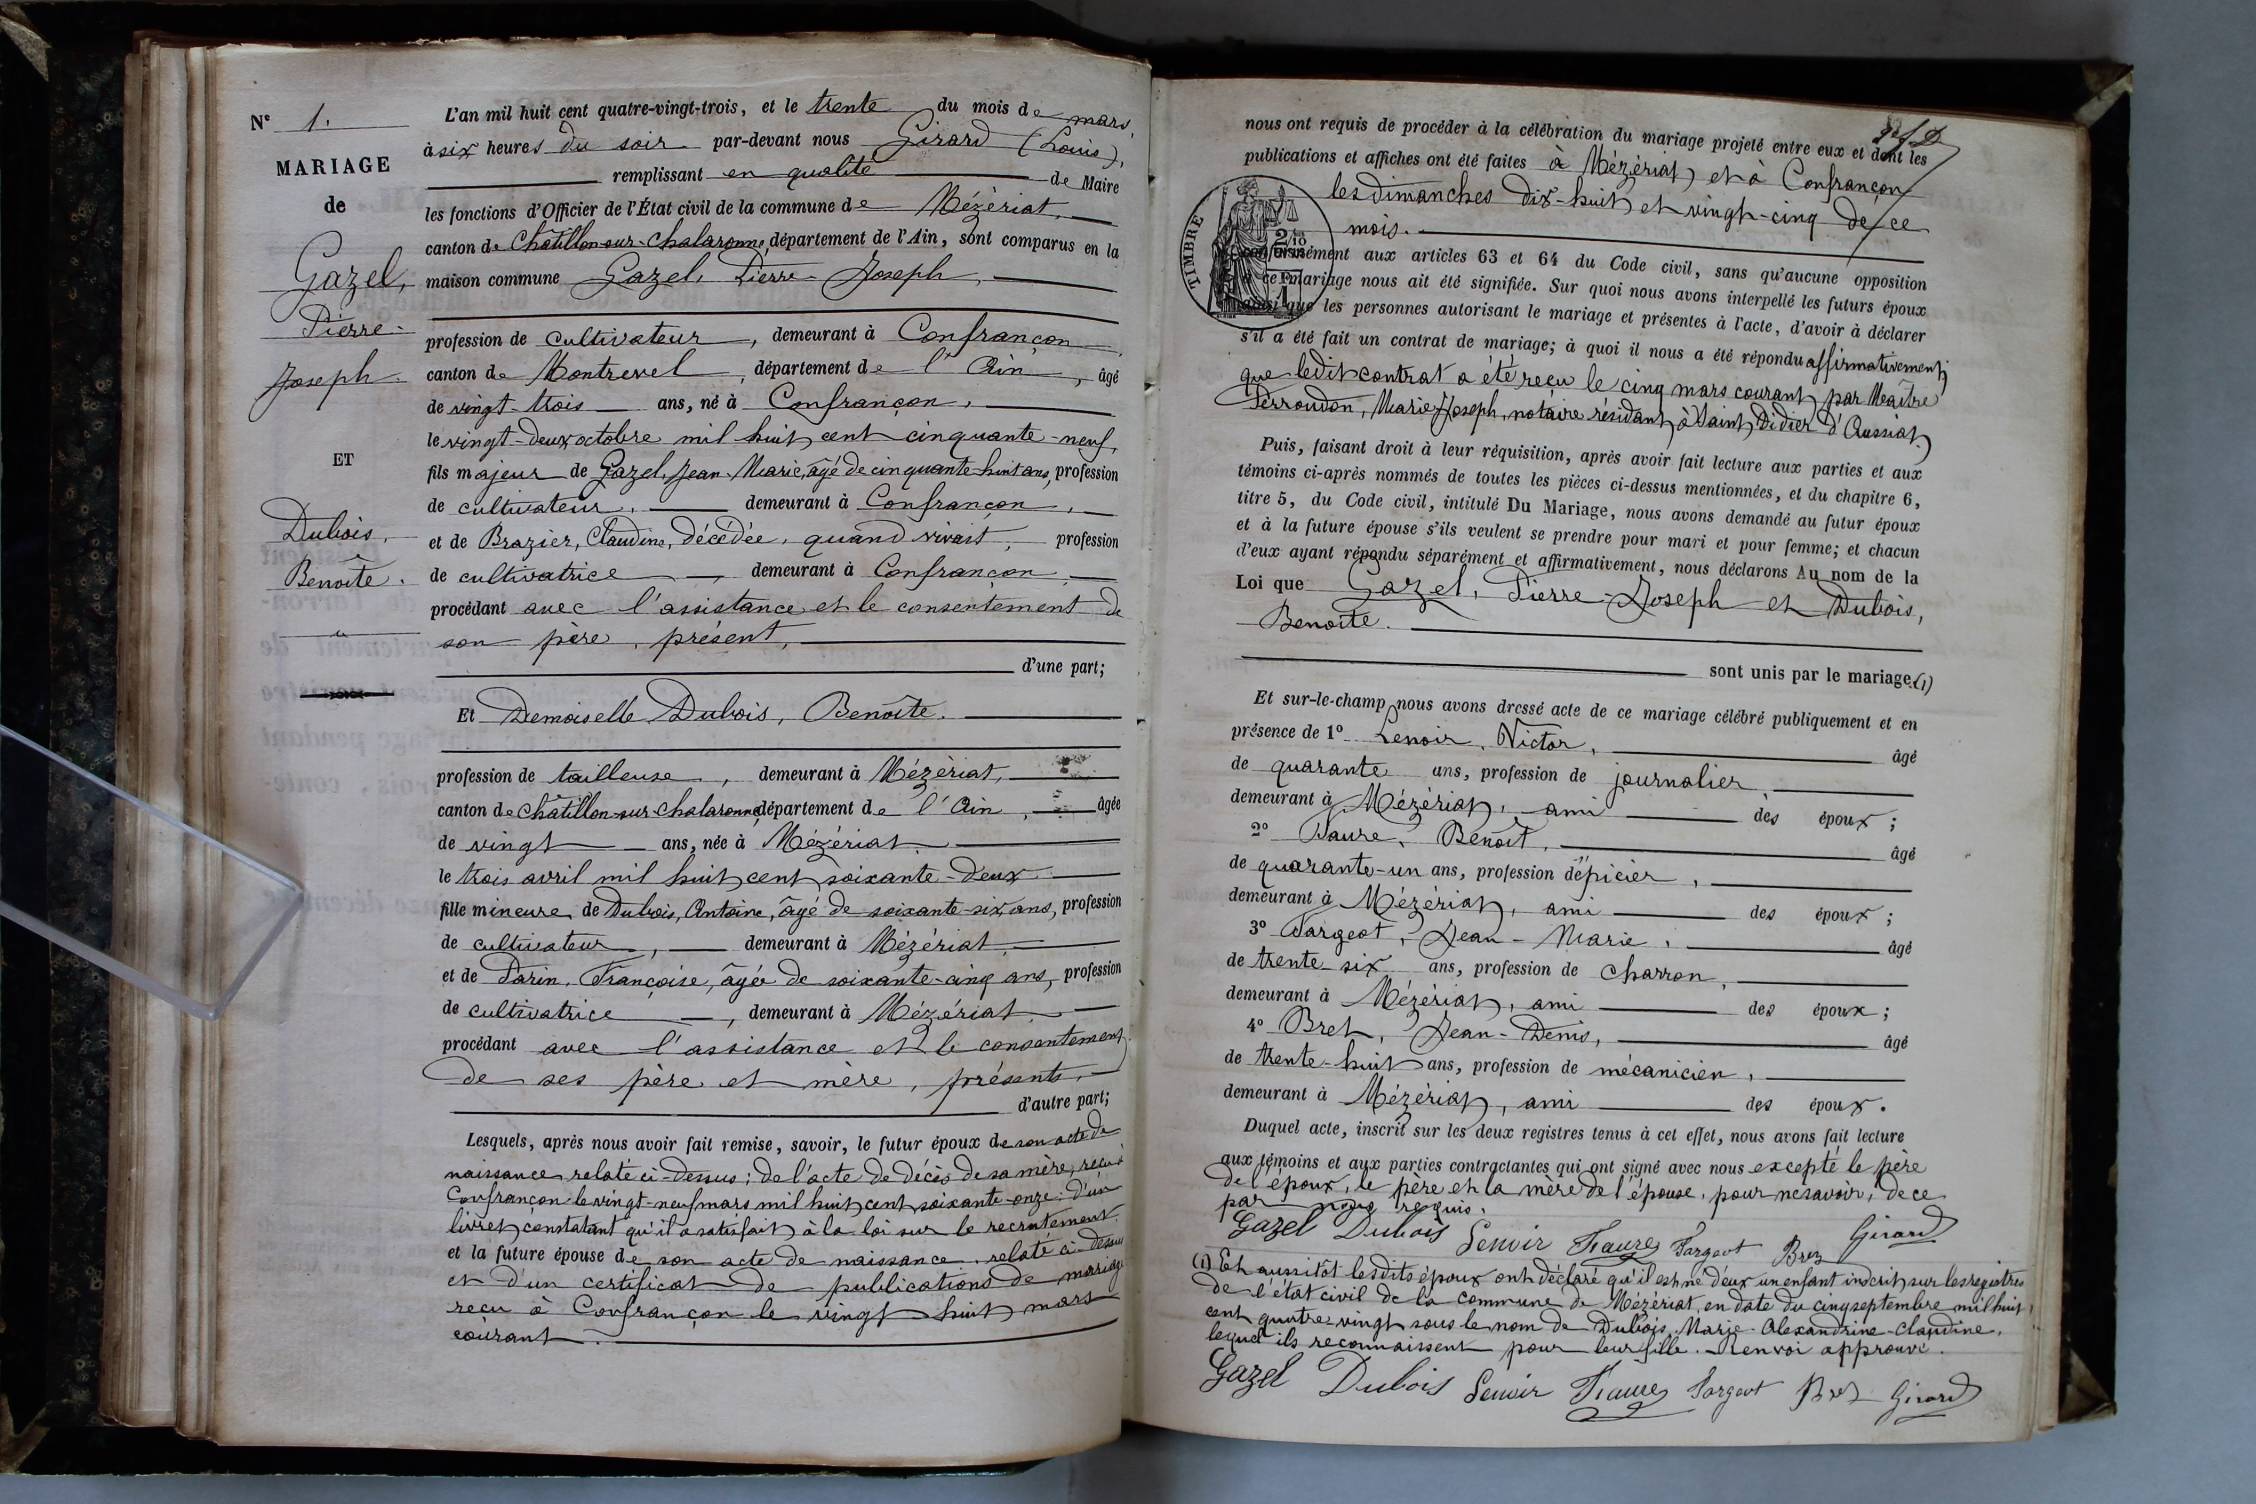 N° 1.
MARIAGE
de
Gazel,
Pierre-
Joseph.
ET
Dubois,
Benoîte.
L'an mil huit cent quatre-vingt-trois, et le trente du mois de mars,
à six heures du soir par-devant nous Girard (Louis),
remplissant en qualité de Maire
les fonctions d'Officier de l'État civil de la commune de Mézériat,
canton de Châtillon-sur-Chalaronne, département de l'Ain, sont comparus en la
maison commune Gazel, Pierre-Joseph,
profession de cultivateur, demeurant à Confrançon,
canton de Montrevel, département de l'Ain, âgé
de vingt-trois ans, né à Confrançon,
le vingt-deux octobre mil huit cent cinquante-neuf,
fils majeur de Gazel, Jean-Marie, âgé de cinquante-huit ans, profession
de cultivateur, demeurant à Confrançon,
et de Brazier, Claudine, décédée, quand vivait, profession
de cultivatrice, demeurant à Confrançon,
procédant avec l'assistance et le consentement de
son père, présent,
d'une part;
Et Demoiselle Dubois, Benoîte.
profession de tailleuse, demeurant à Mézériat,
canton de Châtillon-sur-Chalaronne, département de l'Ain, âgée
de vingt ans, née à Mézériat,
le trois avril mil huit cent soixante-deux
fille mineure de Dubois, Antoine, âgé de soixante-six ans, profession
de cultivateur, demeurant à Mézériat,
et de Parin, Françoise, âgée de soixante-cinq ans, profession
de cultivatrice, demeurant à Mézériat,
procédant avec l'assistance et le consentement
de ses père et mère, présents,
d'autre part;
Lesquels, après nous avoir fait remise, savoir, le futur époux de son acte de
naissance relaté ci-dessus; de l'acte de décès de sa mère, reçu à
Confrançon le vingt-neuf mars mil huit cent soixante-onze; d'un
livret constatant qu'il a satisfait à la loi sur le recrutement.
et la future épouse de son acte de naissance, relaté ci-dessus
et d'un certificat de publications de mariage
reçu à Confrançon le vingt-huit mars
courant.
nous ont requis de procéder à la célébration du mariage projeté entre eux et dont les
publications et affiches ont été faites à Mézériat et à Confrançon
les dimanches dix-huit et vingt-cinq de ce
mois.
TIMBRE
conformément aux articles 63 et 64 du Code civil, sans qu'aucune opposition
à ce mariage nous ait été signifiée. Sur quoi nous avons interpellé les futurs époux
ainsi que les personnes autorisant le mariage et présentes à l'acte, d'avoir à déclarer
s'il a été fait un contrat de mariage; à quoi il nous a été répondu affirmativement;
que ledit contrat a été reçu le cinq mars courant par Maître
Perroudon, Marie-Joseph, notaire résidant à Saint Didier d'Aussiat.
Puis, faisant droit à leur réquisition, après avoir fait lecture aux parties et aux
témoins ci-après nommés de toutes les pièces ci-dessus mentionnées, et du chapitre 6,
titre 5, du Code civil, intitulé Du Mariage, nous avons demandé au futur époux
et à la future épouse s'ils veulent se prendre pour mari et pour femme; et chacun
d'eux ayant répondu séparément et affirmativement, nous déclarons Au nom de la
Loi que Gazel, Pierre-Joseph et Dubois,
Benoîte.
sont unis par le mariage. (1)
Et sur-le-champ nous avons dressé acte de ce mariage célébré publiquement et en
présence de 1° Lenoir, Victor, âgé
de quarante ans, profession de journalier,
demeurant à Mézériat, ami des époux;
2° Faure, Benoît, âgé
de quarante-un ans, profession d'épicier,
demeurant à Mézériat, ami des époux;
3° Fargeot, Jean-Marie, âgé
de trente-six ans, profession de charron,
demeurant à Mézériat, ami des époux;
4° Bret, Jean-Denis, âgé
de trente-huit ans, profession de mécanicien,
demeurant à Mézériat, ami des époux.
Duquel acte, inscrit sur les deux registres tenus à cet effet, nous avons fait lecture
aux témoins et aux parties contractantes qui ont signé avec nous excepté le père
de l'époux, le père et la mère de l'épouse, pour ne savoir, de ce
par nous requis.
Gazel Dubois Lenoir Faure Fargeot Bret Girard
(1) Et aussitôt lesdits époux ont déclaré qu'il est né d'eux un enfant inscrit sur les registres
de l'état civil de la commune de Mézériat, en date du cinq septembre mil huit
cent quatre-vingt sous le nom de Dubois, Marie-Alexandrine-Claudine,
lequel ils reconnaissent pour leur fille. - Renvoi approuvé.
Gazel Dubois Lenoir Faure Fargeot Bret Girard